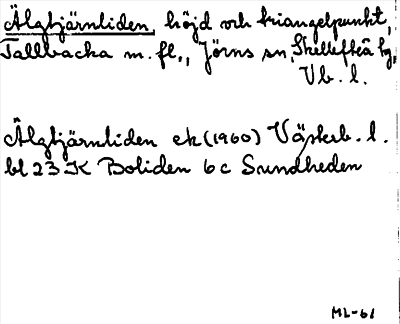 Älgtjärnliden, höjd och triangelpunkt,
Tallbacka m. fl., Jörns sn, Skellefteå tg,
Vb. l.
Älgtjärnliden ek (1960) Västerb. l.
bl 23 K Boliden 6 c Sundheden
ML-61